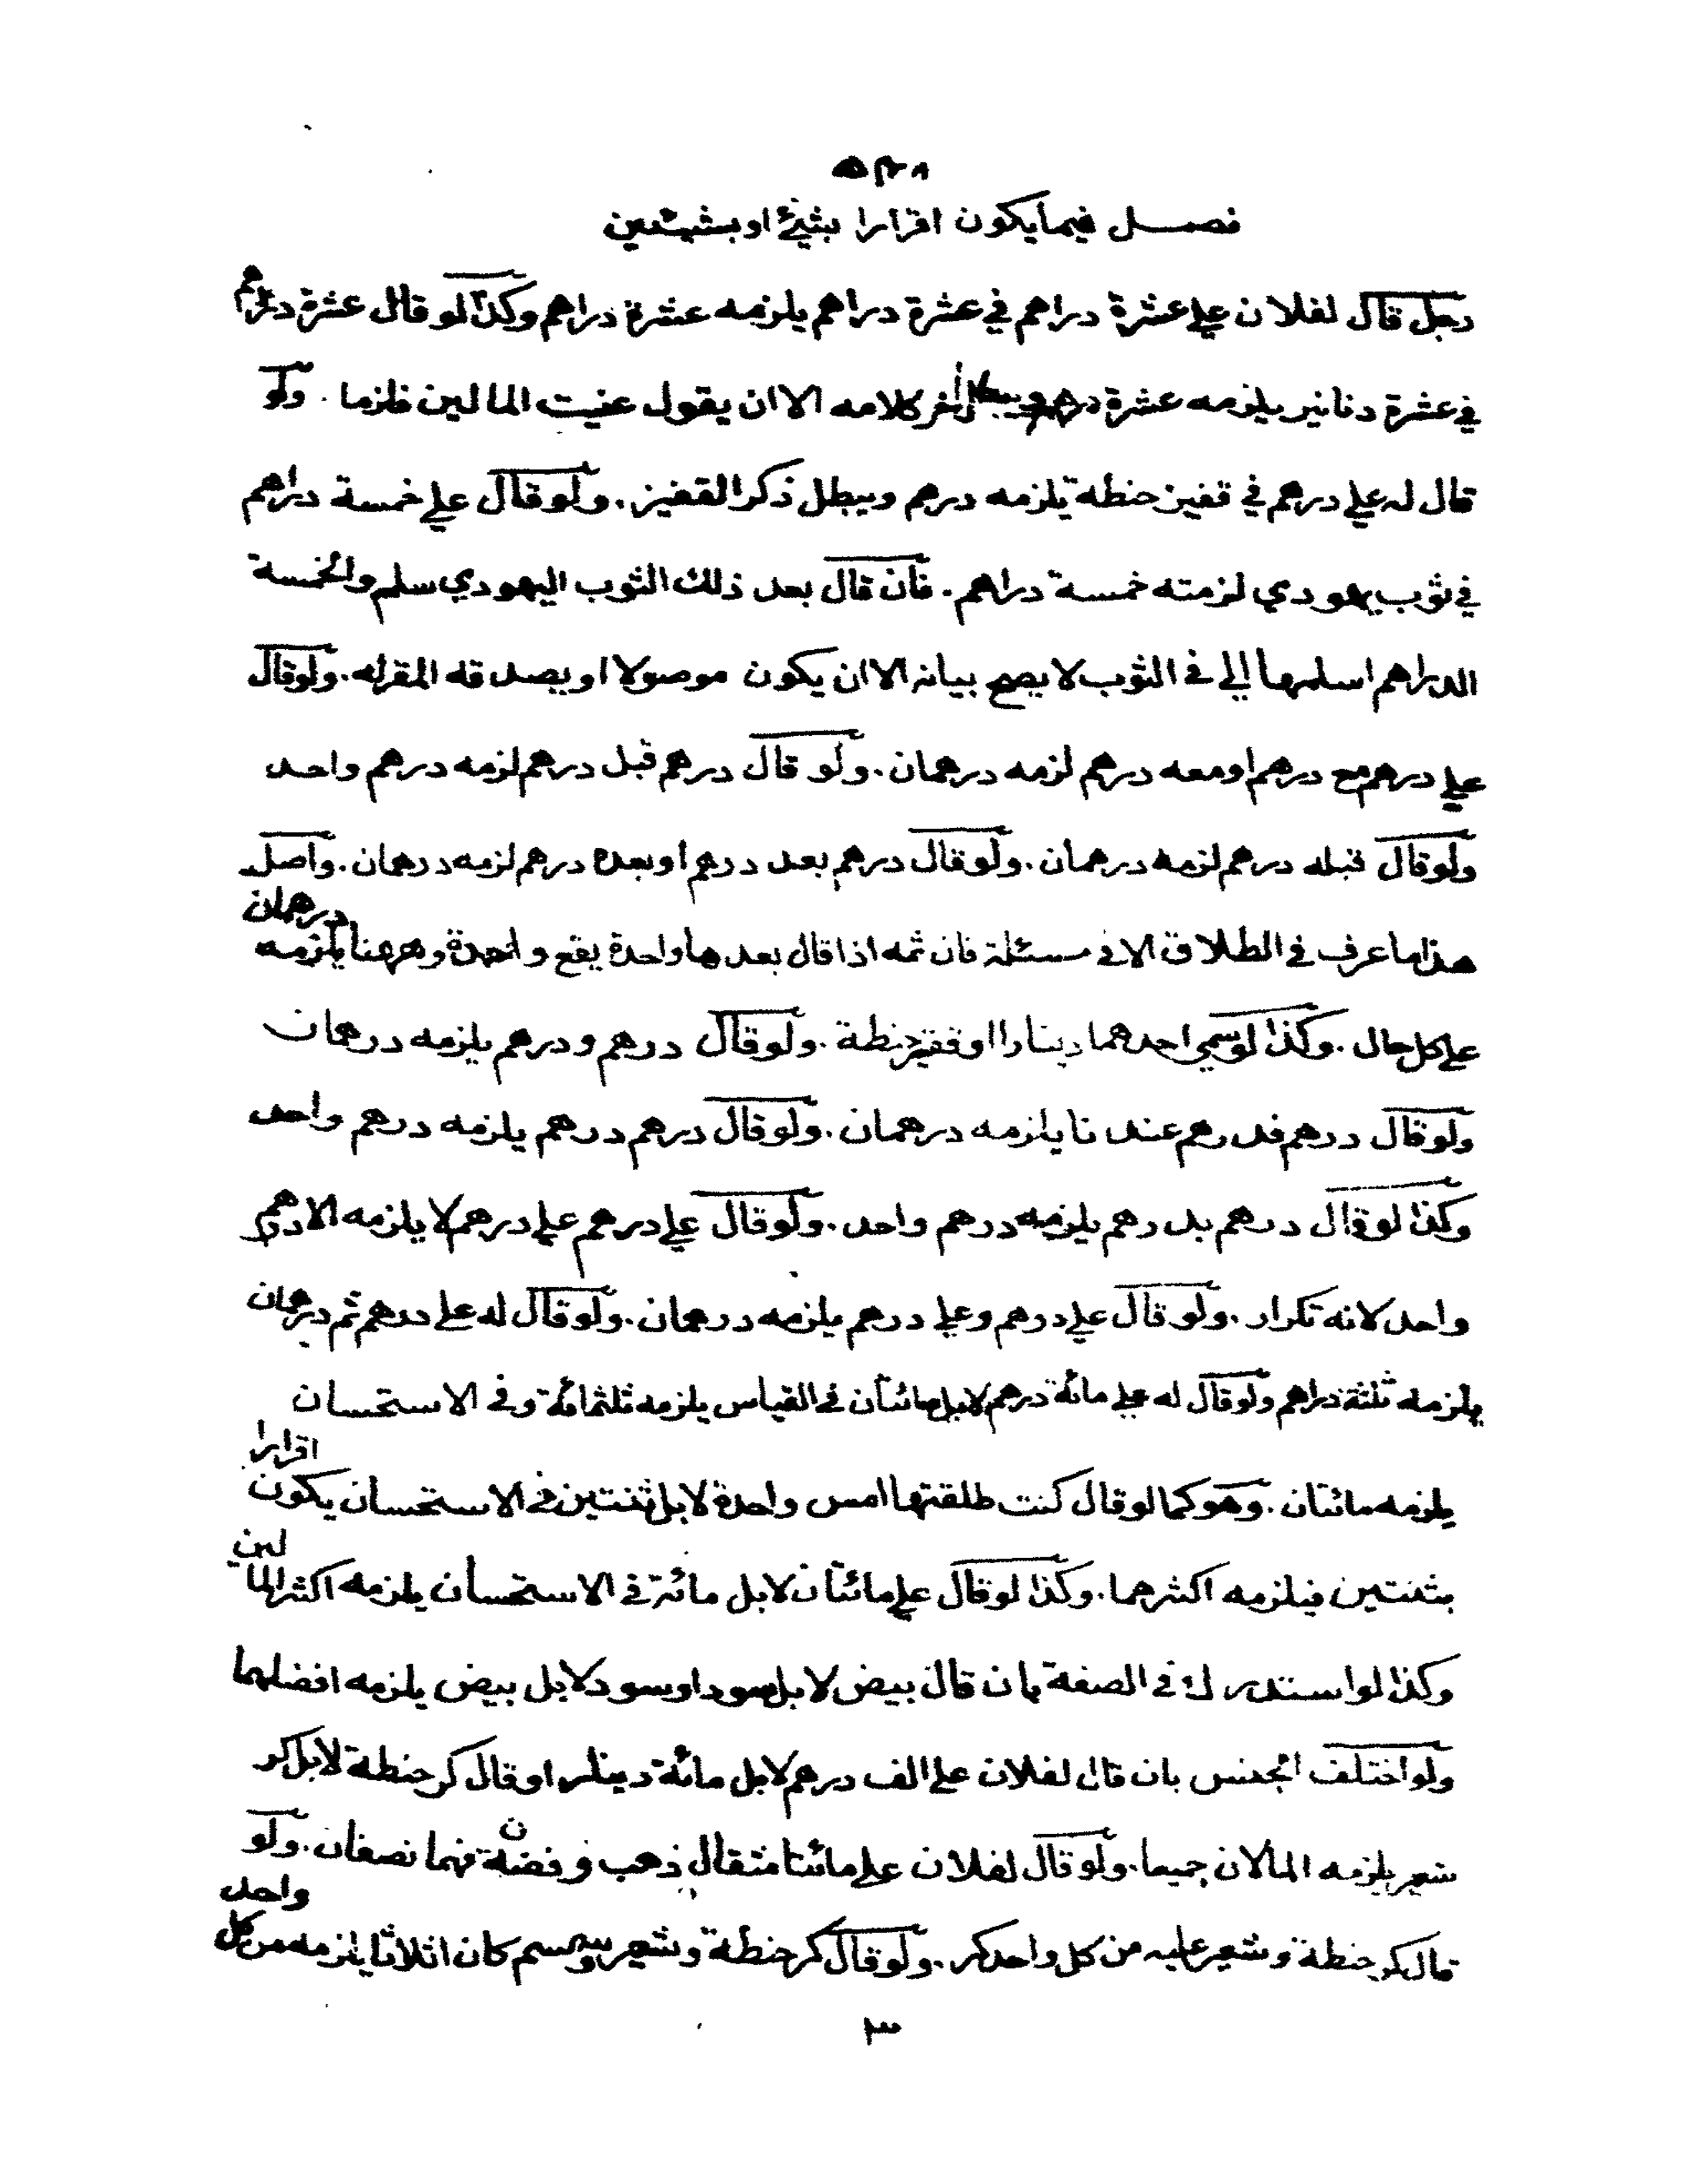 فصل فيما يكون اقرارا بشئ او بشيئين
رجل قال لفلان علي عشرة دراهم في عشرة دراهم يلزمه عشرة دراهم وكذا لو قال عشرة دراهم
في عشرة دنانير يلزمه عشرة دراهم ويبطل آخر كلامه الا ان يقول عنيت المالين فلزما . ولو
قال له علي درهم في قفيز حنطة يلزمه درهم ويبطل ذكر القفيز . ولو قال علي خمسة دراهم
في ثوب يهودي لزمته خمسة دراهم . فان قال بعد ذلك الثوب اليهودي سلم والخمسة
الدراهم اسلمها الي في الثوب لا يصح بيانه الا ان يكون موصولا او يصدقه المقر له . ولو قال
علي درهم مع درهم او معه درهم لزمه درهمان . ولو قال درهم قبل درهم لزمه درهم واحد
ولو قال قبله درهم لزمه درهمان . ولو قال درهم بعد درهم او بعده درهم لزمه درهمان . واصل
هذا ما عرف في الطلاق الا في مسئلة فان ثمه اذا قال بعدها واحدة يقع واحدة وههنا يلزمه درهمان
علي كل حال . وكذا لو سمي احدهما دينارا او قفيز حنطة . ولو قال درهم ودرهم يلزمه درهمان
ولو قال درهم فدرهم عندنا يلزمه درهمان . ولو قال درهم درهم يلزمه درهم واحد
وكذا لو قال درهم بدرهم يلزمه درهم واحد . ولو قال علي درهم علي درهم لا يلزمه الا درهم
واحد لانه تكرار . ولو قال علي درهم وعلي درهم يلزمه درهمان . ولو قال له علي درهم ثم درهمان
يلزمه ثلثة دراهم ولو قال له علي مائة درهم لا بل مائتان في القياس يلزمه ثلثمائة وفي الاستحسان
يلزمه مائتان . وهو كما لو قال كنت طلقتها امس واحدة لا بل ثنتين في الاستحسان يكون اقرارا
بثنتين فيلزمه اكثرهما . وكذا لو قال علي مائتان لا بل مائة في الاستحسان يلزمه اكثر المالين
وكذا لو استدرك في الصفة بان قال بيض لا بل سود او سود لا بل بيض يلزمه افضلهما
ولو اختلف الجنس بان قال لفلان علي الف درهم لا بل مائة دينار او قال كر حنطة لا بل كر
شعير يلزمه المالان جميعا . ولو قال لفلان علي مائتا مثقال ذهب وفضة فهما نصفان . ولو
قال كر حنطة وشعير عليه من كل واحد كر . ولو قال كر حنطة وشعير وسمسم كان اثلاثا يلزمه من كل واحد